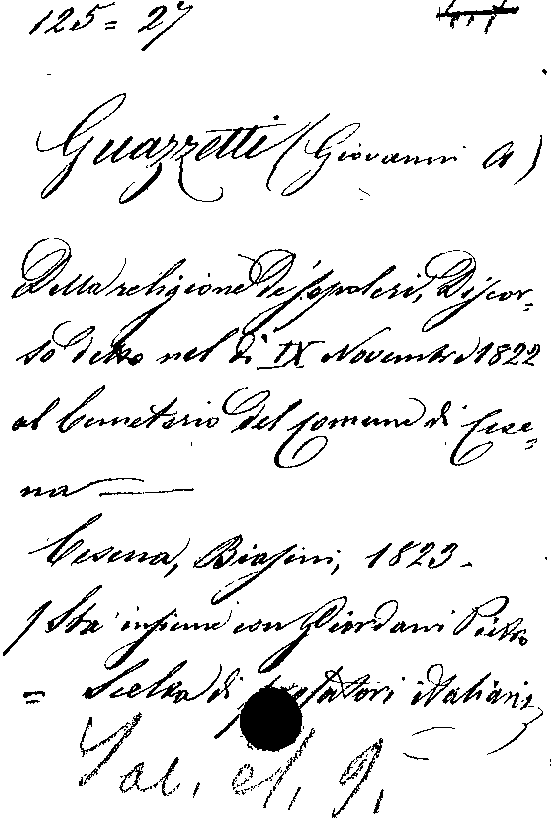 125=27
Guazzetti (Giovanni A)
Della religione de' sepolcri, Discor=
so detto nel dì IX Novembre 1822
al Cemeterio del Comune di Cese=
na —
Cesena, Biasini, 1823 -
( Sta insieme con Giordani Pietro
= Scelta di prosatori italiani)
Sal. 9,